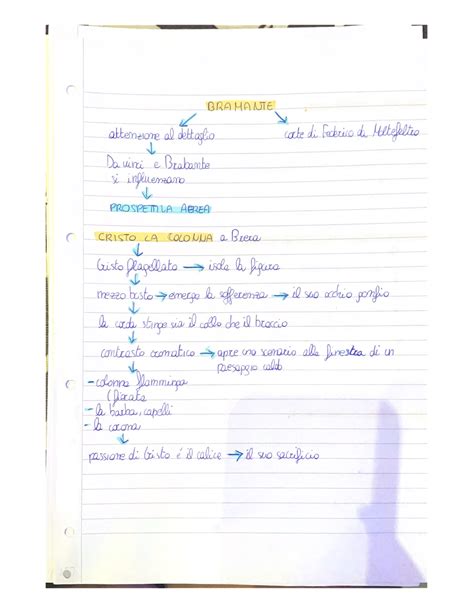 BRAMANTE
attenzione al dettaglio
corte di Federico da Moltefeltro
Da vinci e Brabante
si influenzano
PROSPETTILA AEREA
CRISTO LA COLONNA a Brera
Cristo flagellato → isola la figura
mezzo busto → emerge la sofferenza → il suo occhio gonfio
la corda stinge sia il collo che il braccio
contrasto cromatico → apre uno scenario alla finestra di un
paesaggio caldo
- colonna flamminga
- la barba, capelli
- la corona
passione di Cristo é il calice → il suo sacrificio